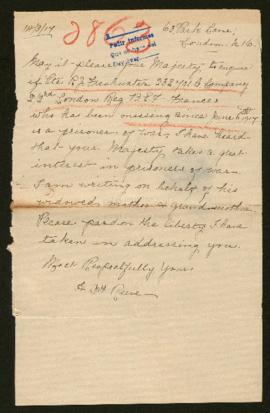 14/8/17
63 Park Lane
London N.16.
May it please Your Majesty to enquire
if Pte R J Freshwater 232701 B Company
London Reg B.E.F. France
who has been missing since June
is a prisoner of war, I have heard
that your Majesty takes a great
interest in prisoners of war.
I am writing on behalf of his
widowed mother & grandmother
Please pardon the liberty I have
taken in addressing you.
Most Respectfully Yours